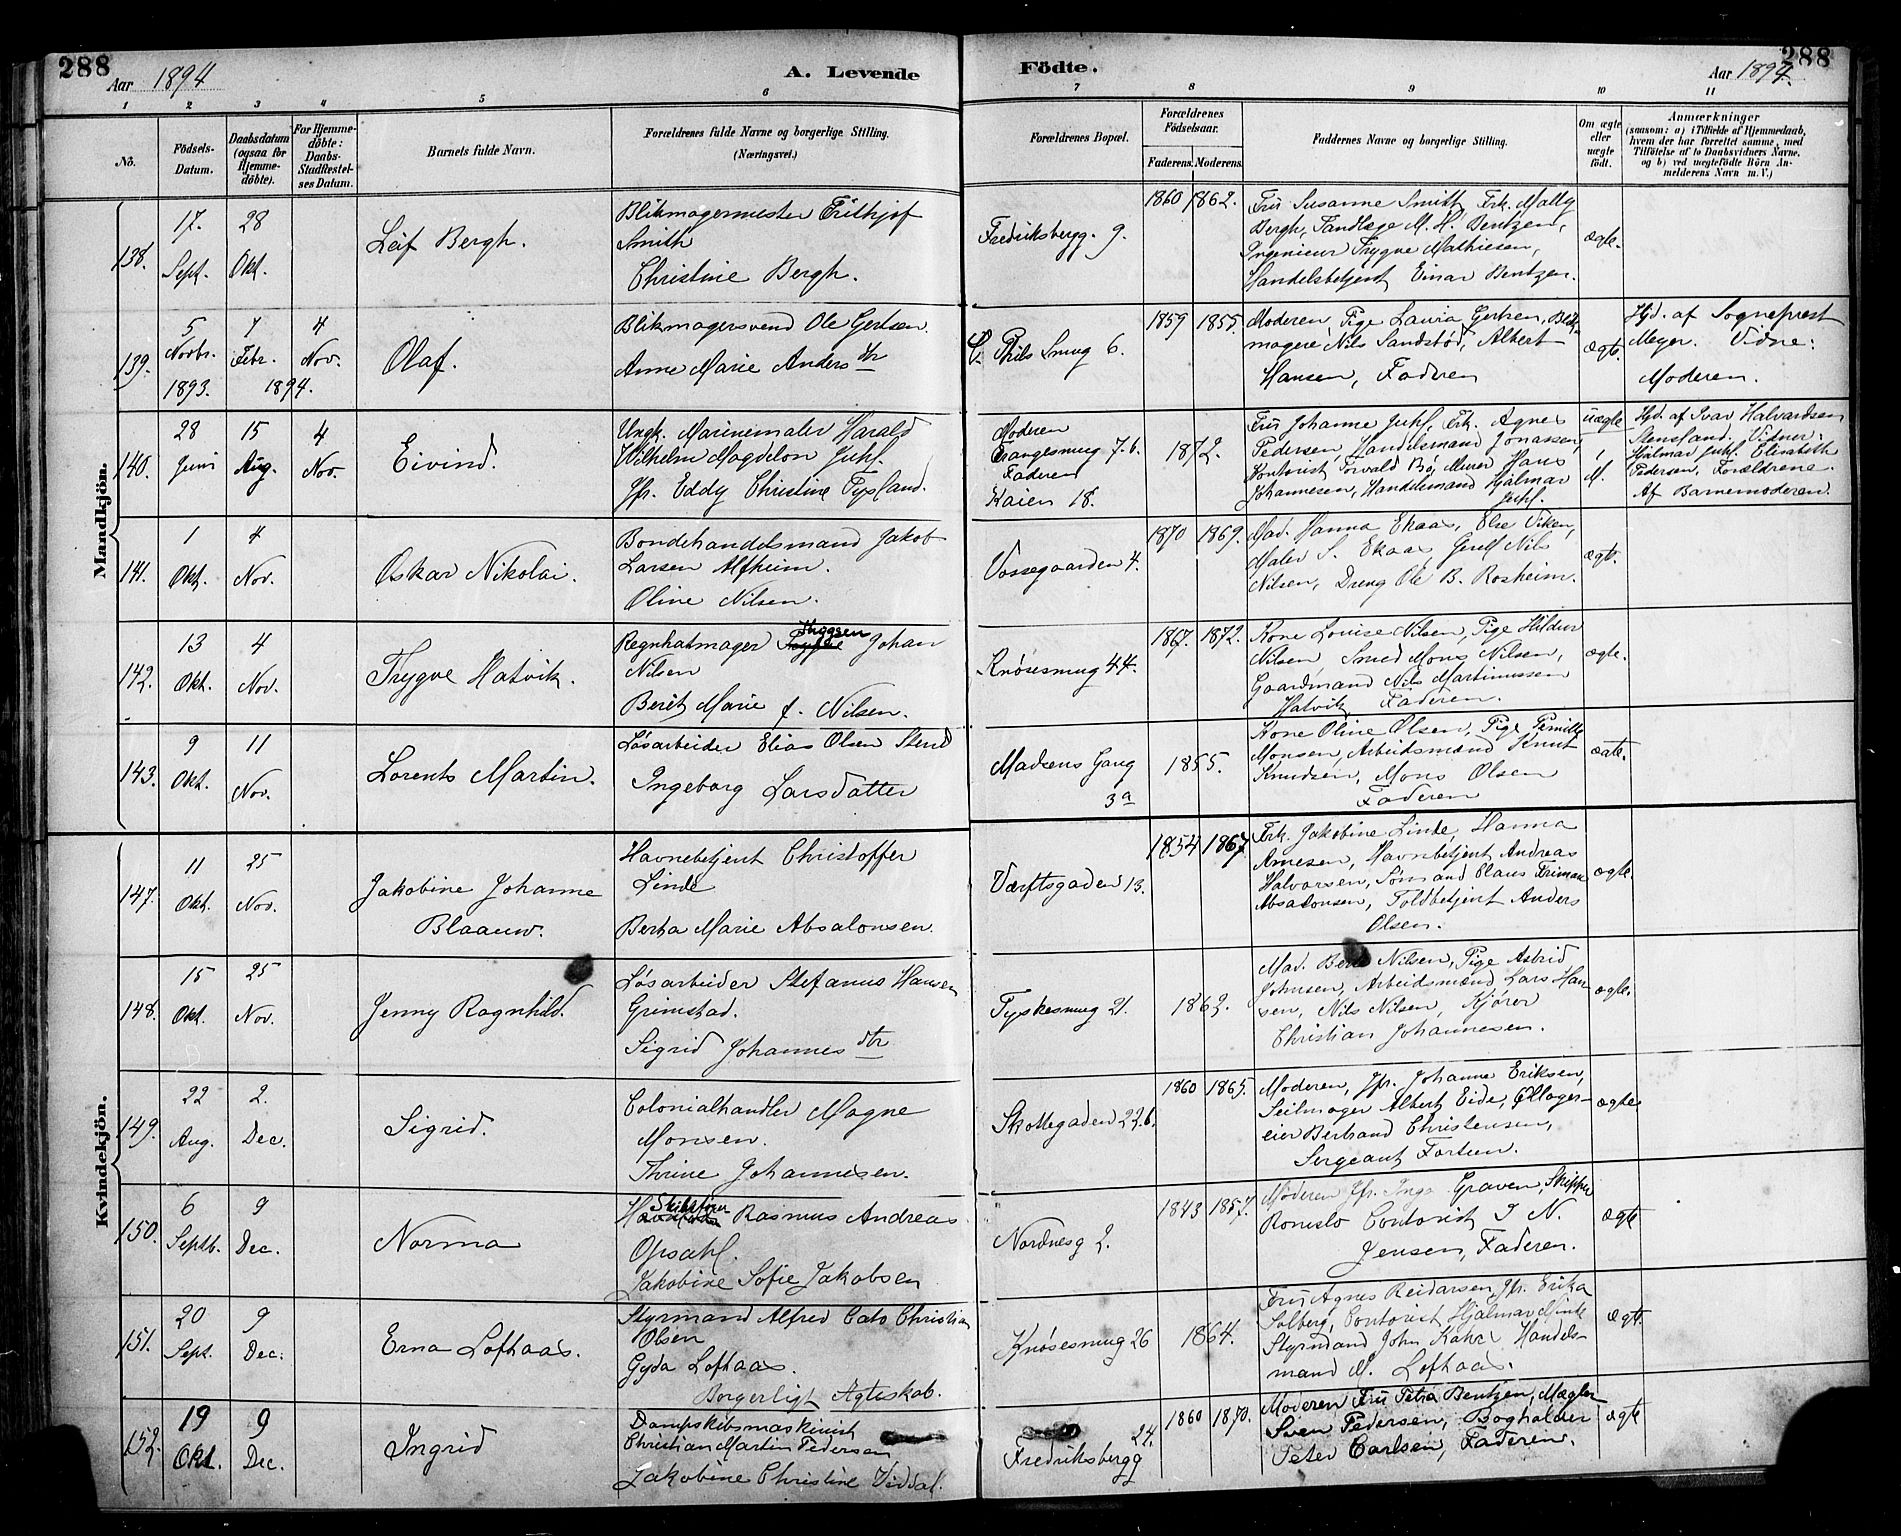 288
Aar 1894
A. Levende
Födte.
288
Aar 1894.
1 2 3 4 5 6 7 8 9 10 11
No.
Födsels-
Datum.
Daabsdatum
(ogsaa for
Hjemme-
döbte).
For Hjemme-
döbte:
Daabs-
Stadfæstel-
ses Datum.
Barnets fulde Navn.
Forældrenes fulde Navne og borgerlige Stilling.
(Næringsvei.)
Forældrenes Bopæl.
Forældrenes
Födselsaar.
Faderens. Moderens.
Faddernes Navne og borgerlige Stilling.
Om ægte
eller
uægte
födt.
Anmærkninger
(saasom: a) i Tilfælde af Hjemmedaab,
hvem der har forrettet samme, med
Tilföielse af to Daabsvidners Navne,
og b) ved uegtefödte Börn An-
melderens Navn m. V.)
Mandkjön.
138.
17.
Sept.
28
Okt.
Leif Bergh.
Blikmagermester Frithjof
Smith
Christine Bergh.
Fredriksbergg. 9.
1860 1862.
Fru Susanne Smith Frk. Mally
Bergh, Tandlæge M. H. Bentzen,
Ingenieur Trygve Mathiesen,
Handelsbetjent Einar Bentzen.
ægte.
139.
5
Novbr.
1893.
7
Febr.
1894.
4
Nov.
Olaf.
Blikmagersvend Ole Gertsen
Anne Marie Anders dtr
Smug 6.
1859 1855.
Moderen, Pige Laura Gertsen, Blik-
magere Nils Sandstød, Albert
Hansen, Faderen
ægte.
Hjd. af Sogneprest
Meyer. Vidne:
Moderen.
140.
28
Juni
15
Aug.
4
Nov.
Eivind.
Ungk. Marinemaler Harald
Wilhelm Magdelon Juhl.
Jfr. Eddy Christine Tysland.
Moderen
7.b.
Faderen
Kaien 18.
1872.
Fru Johanne Juhl, Frk. Agnes
Pedersen, Handelsmand Jonassen,
Kontorist Torvald Bø, Murer Hans
Johannesen, Handelsmand Hjalmar
Juhl.
uægte
M.
Hjd. af Ivar Halvardsen
Stensland. Vidner:
Hjalmar Juhl. Elisabeth
Pedersen, Forældrene.
Af Barnemoderen.
141.
1
Okt.
4
Nov.
Oskar Nikolai.
Bondehandelsmand Jakob
Larsen Alfheim.
Oline Nilsen.
Vossegaarden 4.
1870 1869.
Mad. Hanna Ekaas, Else Viken,
Maler S. Ekaas, Gesell Nils
Nilsen, Dreng Ole B. Rosheim.
ægte.
142.
13
Okt.
4
Nov.
Trygve Hatvik.
Thygsen
Regnhatmager Johan
Nilsen
Berit Marie f. Nilsen.
Knøsesmug 44.
1867. 1872.
Kone Louise Nilsen, Pige Hildur
Nilsen, Smed Mons Nilsen,
Gaardmand Nils Martinussen
Hatvik Faderen.
ægte.
143.
9
Okt.
11
Nov.
Lorents Martin.
Løsarbeider Elias Olsen Stend
Ingeborg Larsdatter
Madsens Gang
3a
1855.
Kone Oline Olsen, Pige Pernille
Monsen, Arbeidsmænd Knut
Knudsen, Mons Olsen
Faderen
ægte.
Kvindekjön.
147.
11
Okt.
25
Nov.
Jakobine Johanne
Blaauw.
Havnebetjent Christoffer
Linde
Berta Marie Absalonsen.
Værftsgaden 13.
1854 1867
Frk. Jakobine Linde, Hanna
Arnesen, Havnbetjent Andreas
Halvorsen, Sømand Claus Friman
Absalonsen, Toldbetjent Anders
Olsen.
ægte.
148.
15
Okt.
25
Nov.
Jenny Ragnhild.
Løsarbeider Stefanus Hansen
Grimstad.
Sigrid Johannes dtr
Tyskesmug 21.
1862.
Mad. Nilsen, Pige Astrid
Johnsen, Arbeidsmænd Lars Han-
sen, Nils Nilsen, Kjører
Christian Johannesen.
ægte.
149.
22
Aug.
2.
Dec.
Sigrid.
Colonialhandler Magne
Monsen.
Thrine Johannesen.
Skottegaden 22.b.
1860 1865.
Moderen, Jfr. Johanne Eriksen,
Seilmager Albert Eide, Øllager-
eier Bertrand Christensen,
Sergeant Fortun.
ægte
150.
6
Septb.
9
Dec.
Norma
Skibsfører
Rasmus Andreas
Opsahl.
Jakobine Sofie Jakobsen
Nordnesg 2.
1843 1857.
Moderen Jfr. Inga Graven, Skipper
Contorist J N.
Jensen, Faderen.
ægte
151.
20
Sept.
9
Dec.
Erna Lofthaas.
Styrmand Alfred Cato Christian
Olsen
Gyda Lofthaas.
Borgerligt Ægteskab.
Knøsesmug 26
1864.
Fru Agnes Reidarsen, Jfr. Erika
Solberg, Contorist Hjalmar Minde
Styrmand John Kahrs Handels-
mand M. Lofthaas.
ægte.
152.
19
Okt.
9
Dec.
Ingrid
Dampskibsmaskinist
Christian Martin Pedersen
Jakobine Christine Viddal.
24.
Fredriksbergg
1860 1870.
Moderen Fru Petra Bentzen, Mægler
Sven Pedersen, Bogholder
Peter Carlsen, Faderen.
ægte